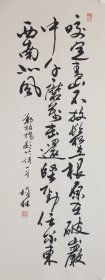 咬定青山不放鬆立根原在破巖
中千磨萬擊還堅勁任尔東
西南北風
鄭板橋